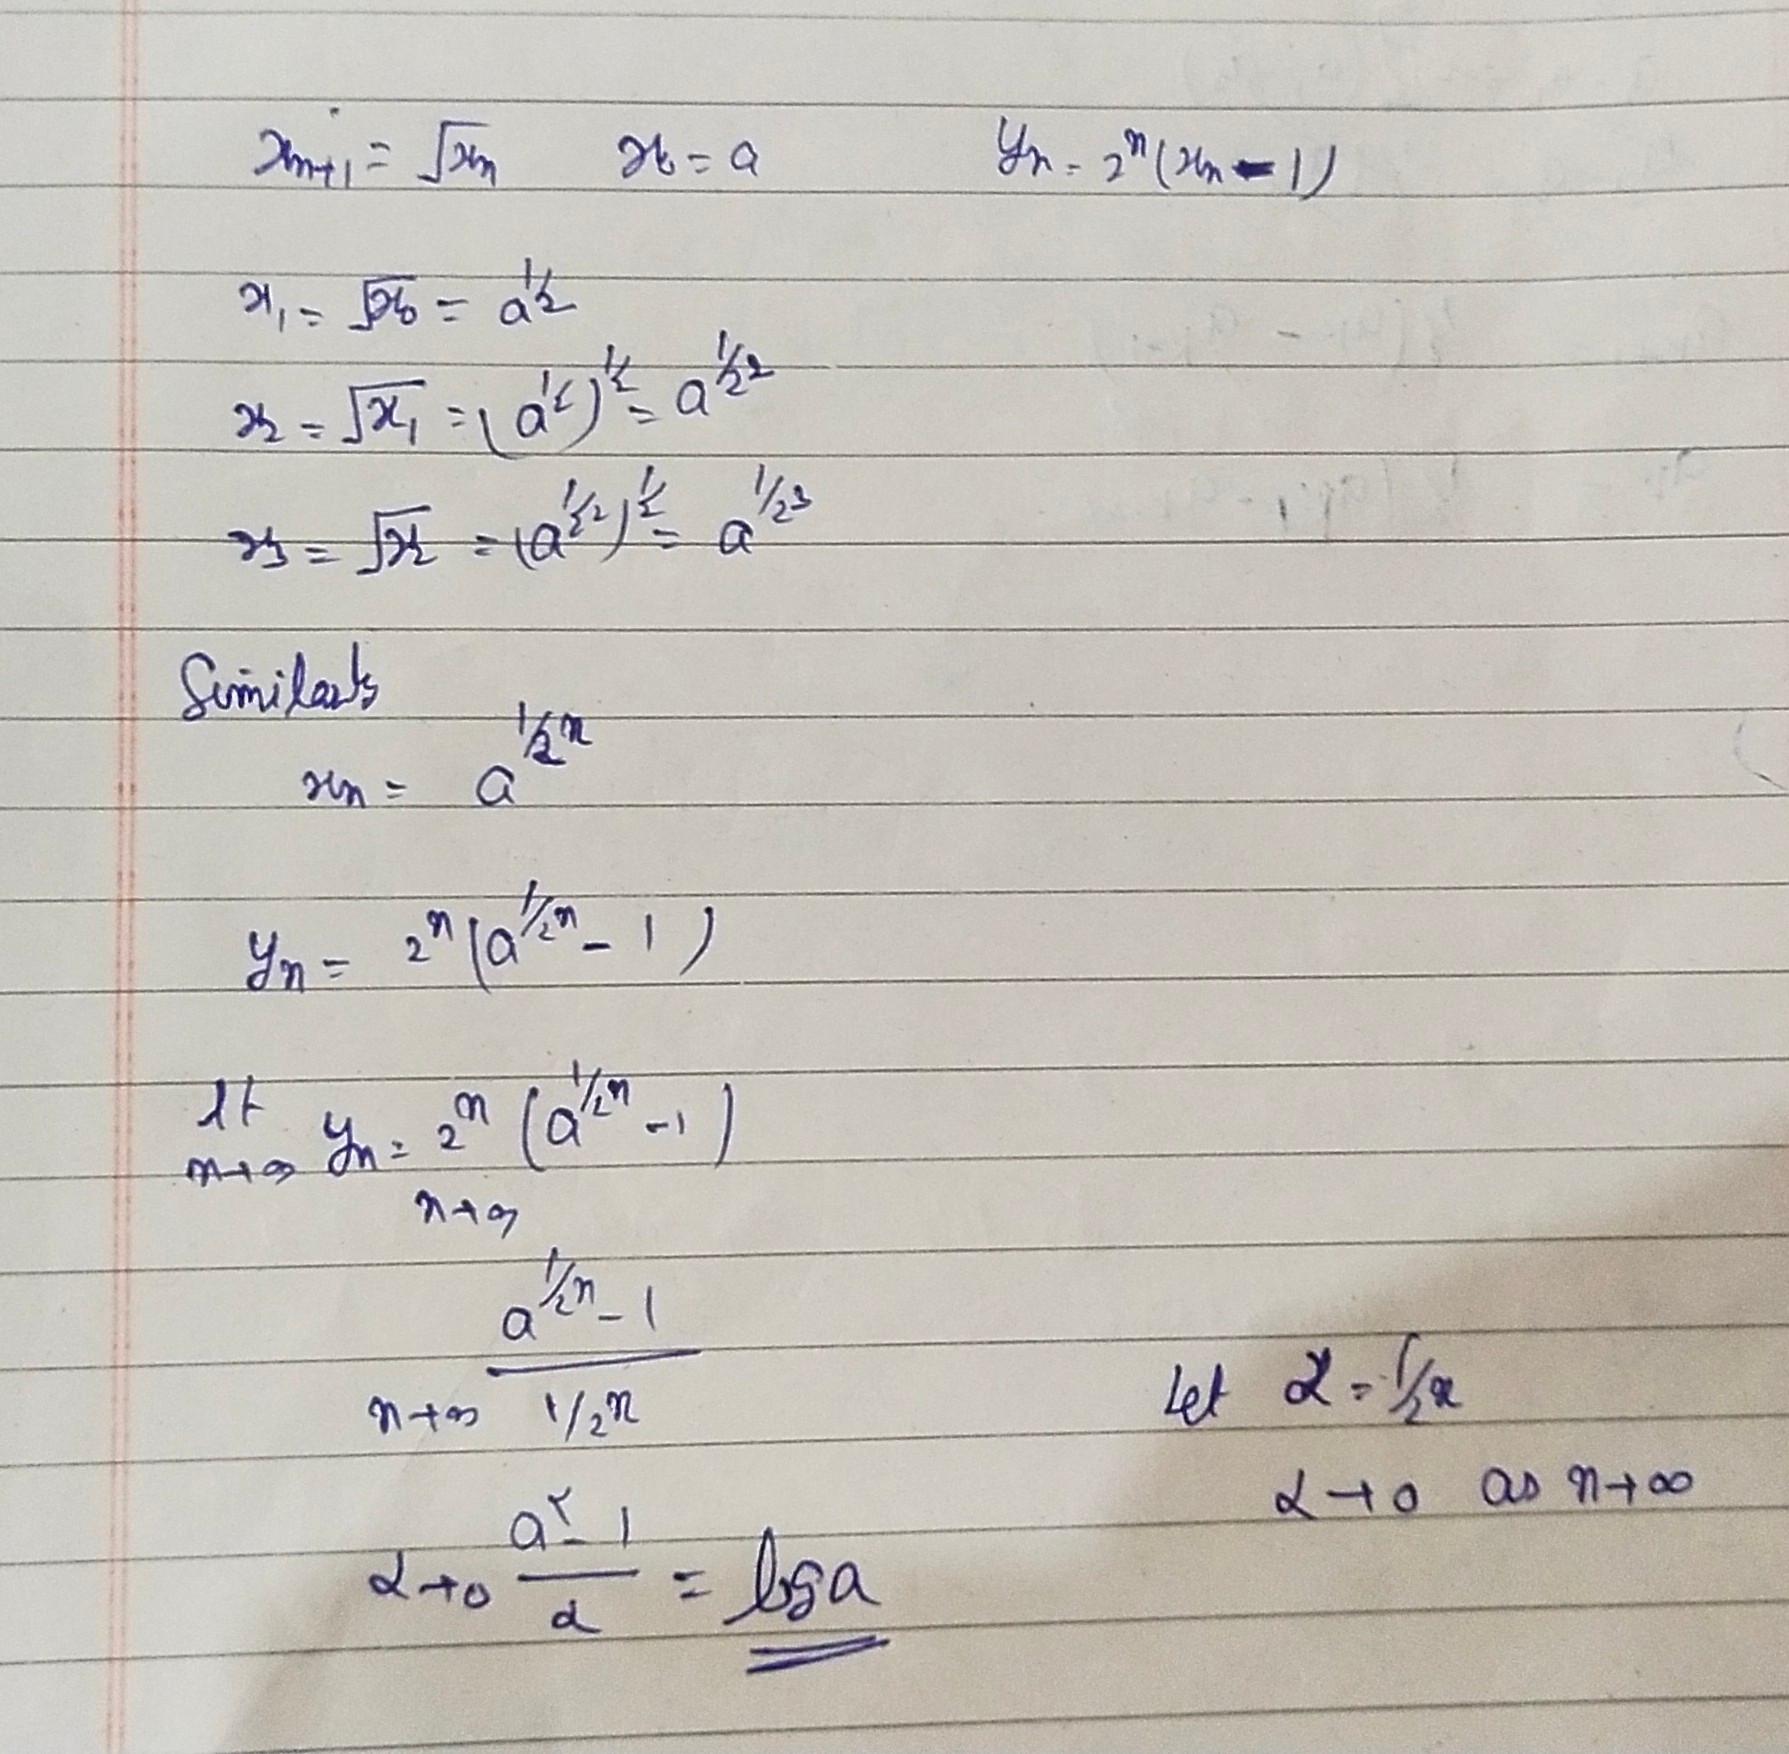 xₙ₊₁ = √xₙ x₀ = a yₙ = 2ⁿ(xₙ - 1)
x₁ = √x₀ = a^1/2
x₂ = √x₁ = (a^1/2)^1/2 = a^1/2²
x₃ = √x₂ = (a^1/2²)^1/2 = a^1/2³
Similarly
xₙ = a^1/2ⁿ
yₙ = 2ⁿ(a^1/2ⁿ - 1)
lt n→∞ yₙ = n→∞ 2ⁿ (a^1/2ⁿ - 1)
n→∞ (a^1/2ⁿ - 1) / (1/2ⁿ) Let α = 1/2ⁿ
α→0 as n→∞
α→0 (a^α - 1) / α = log a